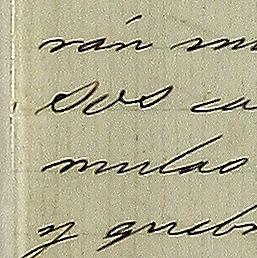 rán m
sos ca
mulas
y queb